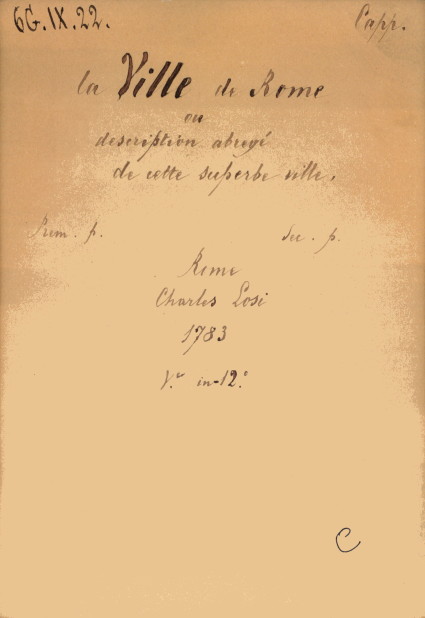 6G.IX.22.
Capp.
la Ville de Rome
ou
description abregé
de cette superbe ville.
Prem. p.
Sec. p.
Rome
Charles Losi
1783
V.e in-12.°
C